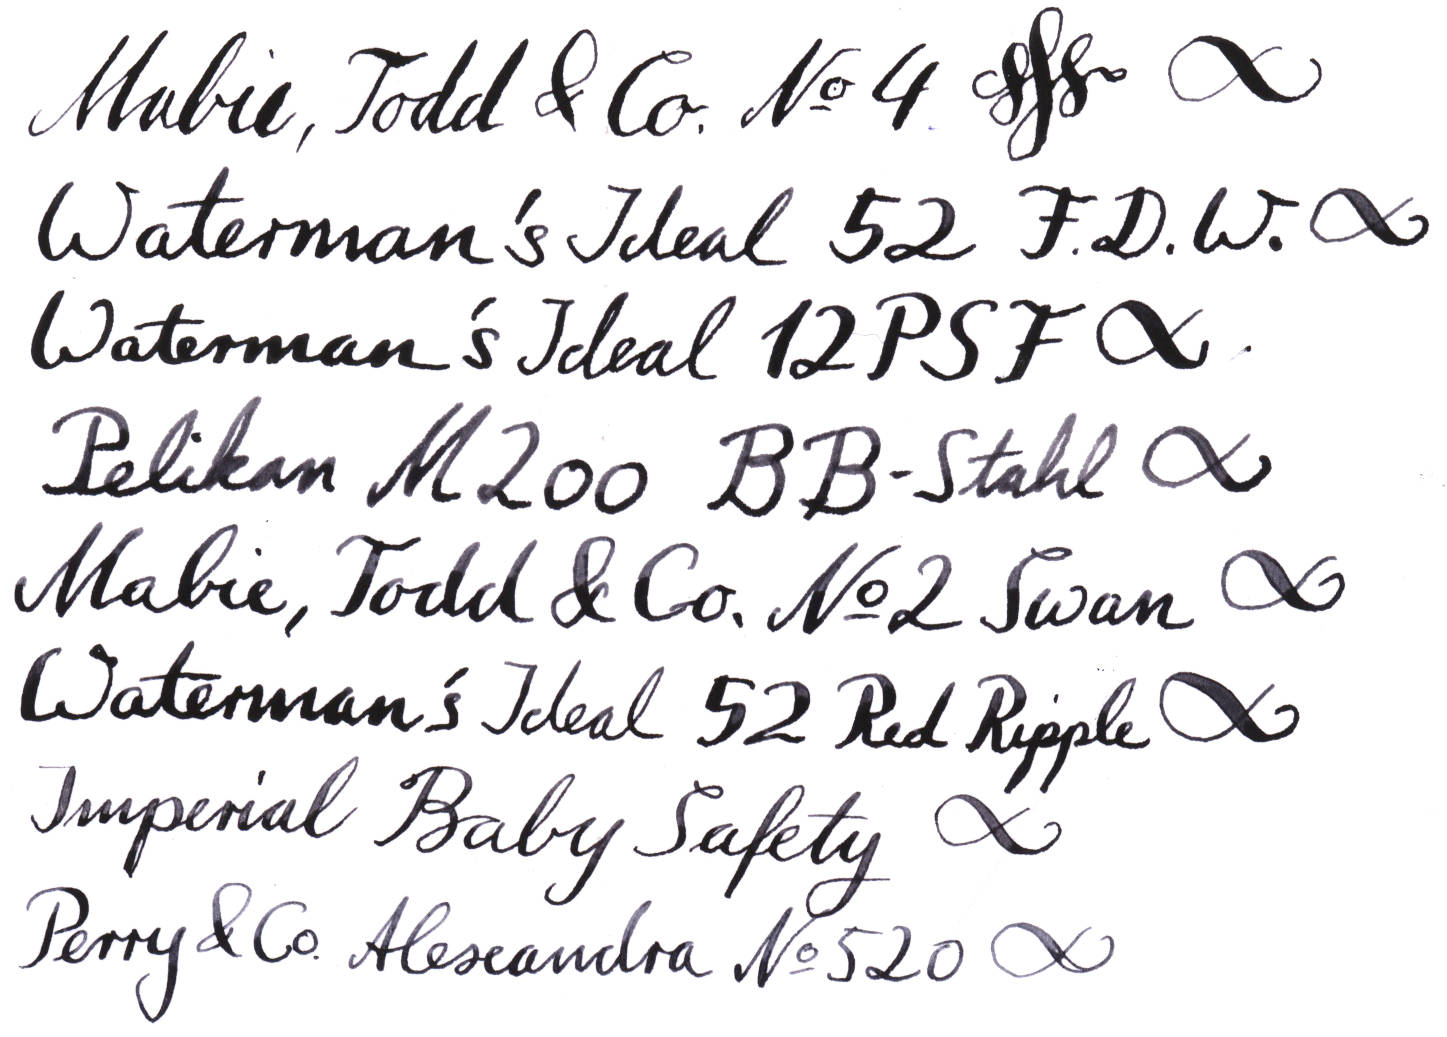 Mabie, Todd & Co. No 4
Waterman's Ideal 52 F.D.W.
Waterman's Ideal 12PSF
Pelikan M200 BB-Stahl
Mabie, Todd & Co. No 2 Swan
Waterman's Ideal 52 Red Ripple
Imperial Baby Safety
Perry & Co. Alexandra No 520